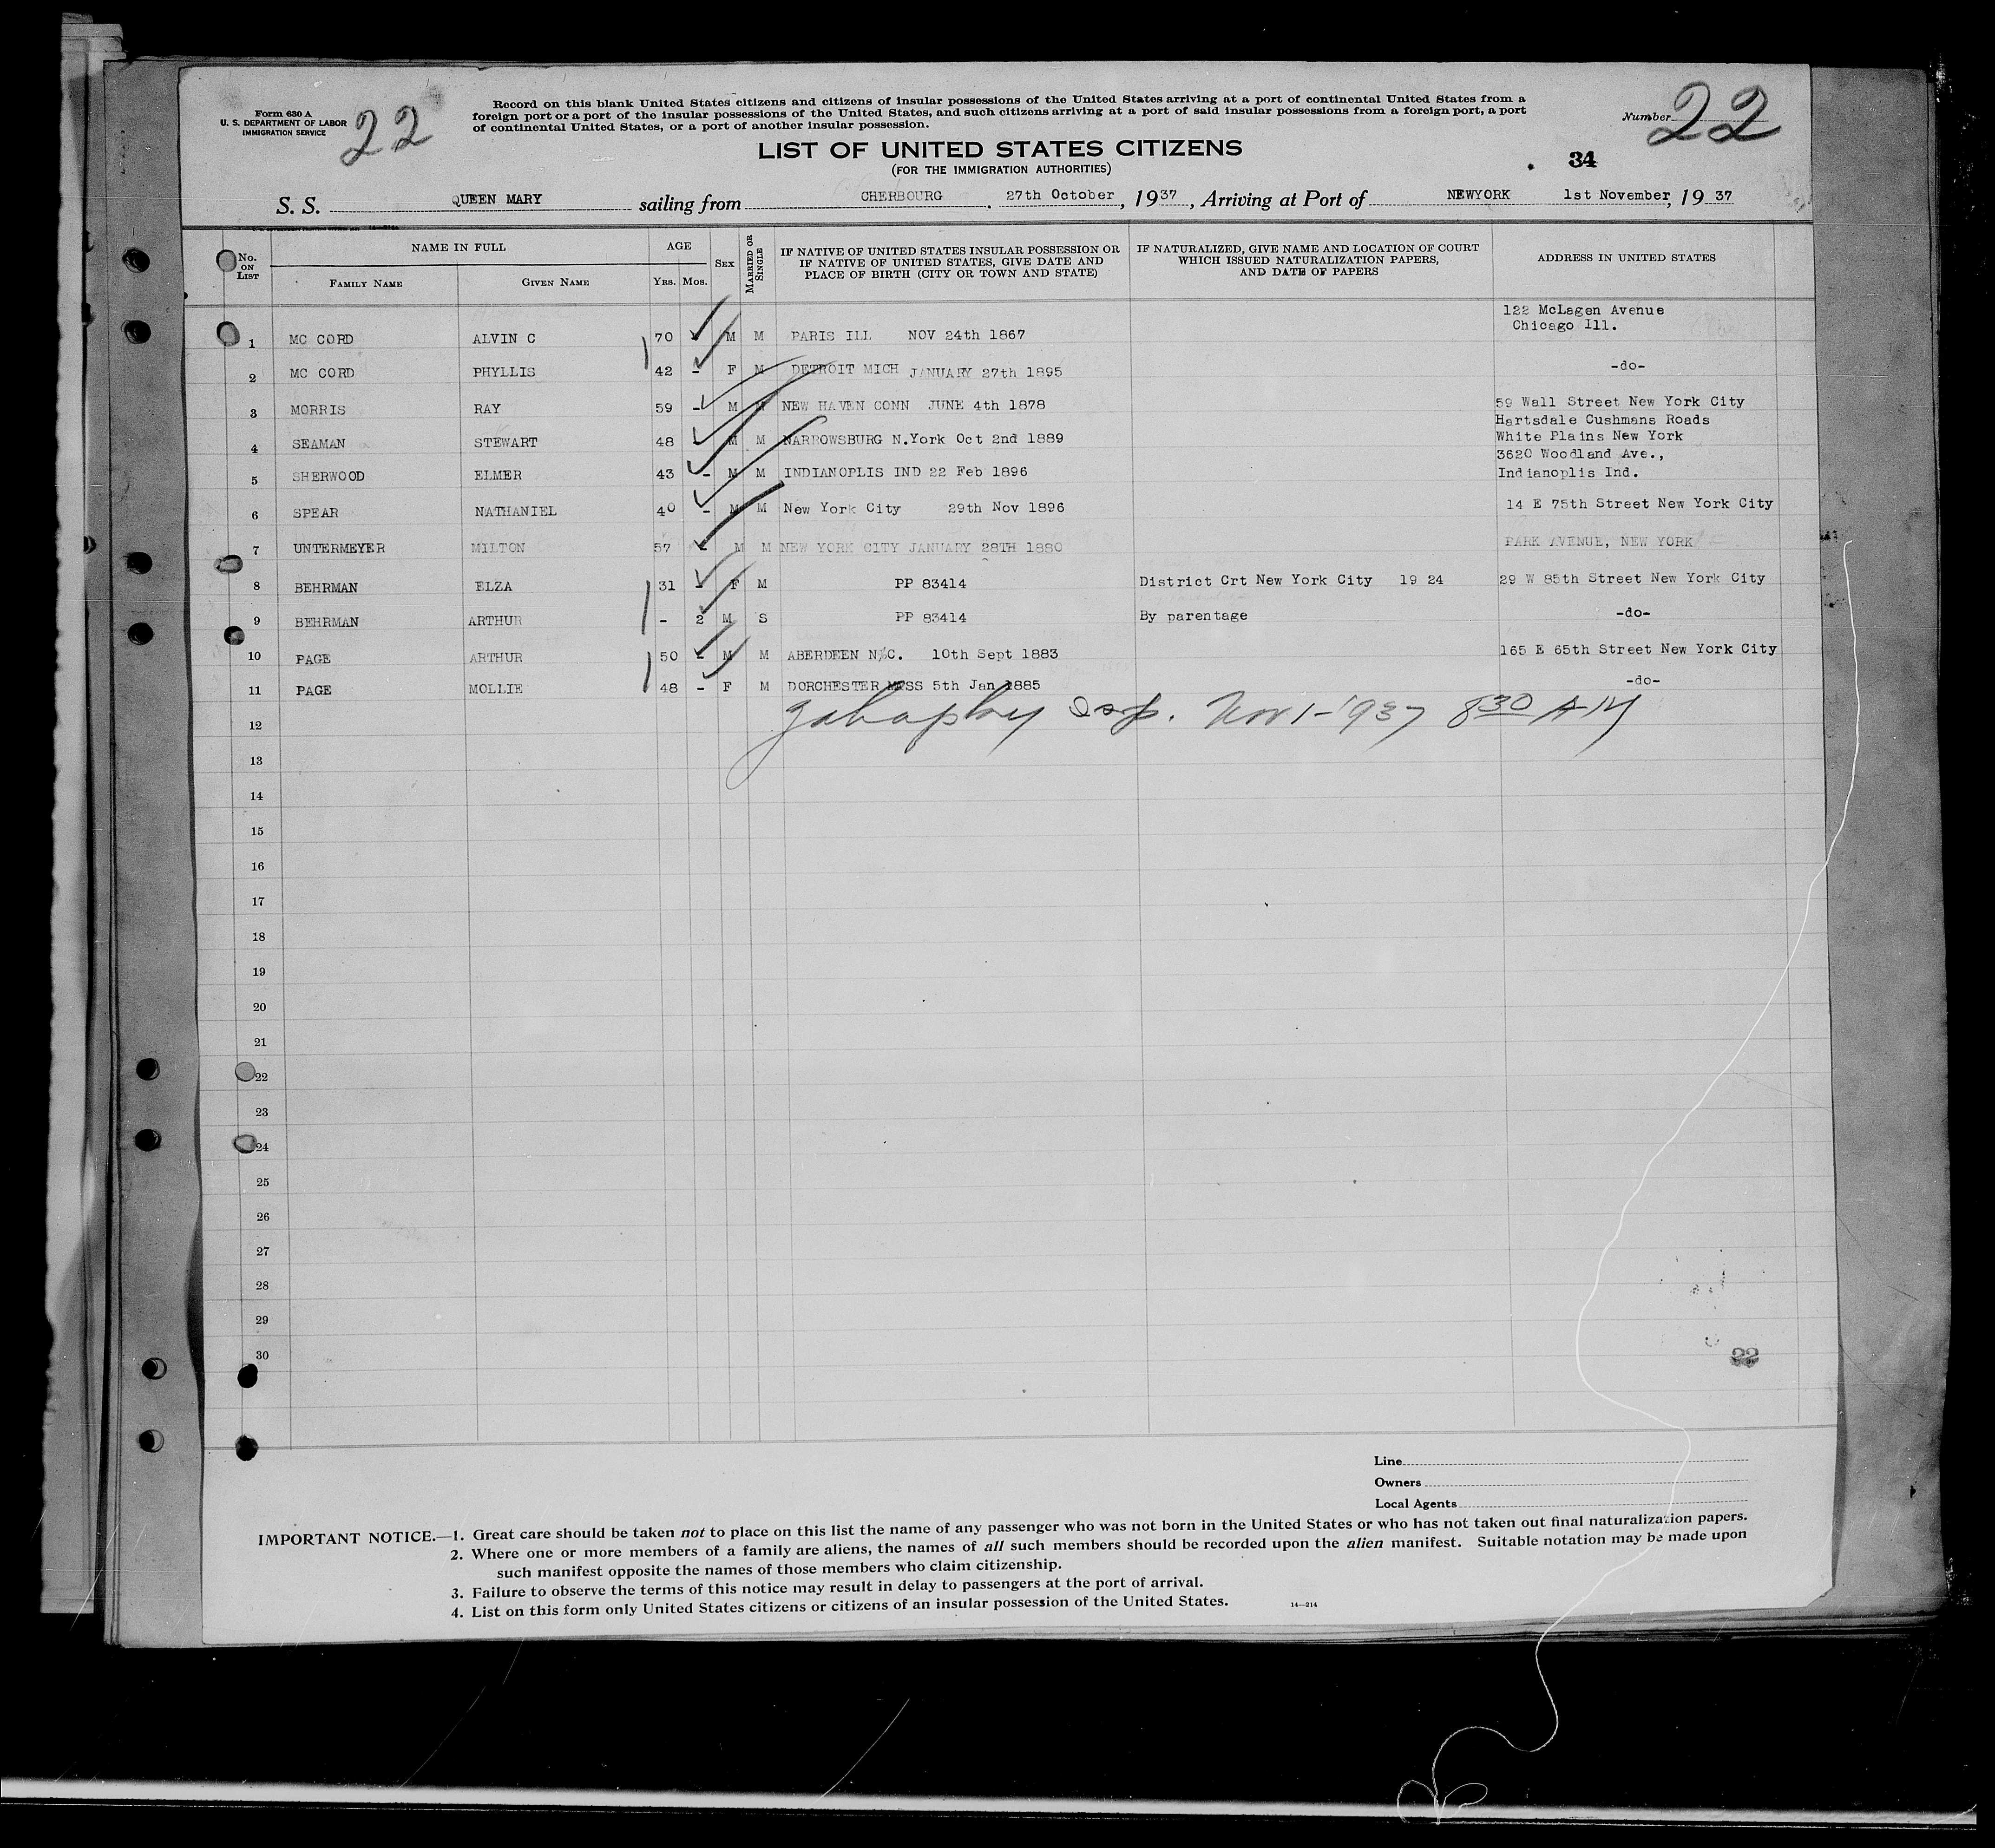 Form 630 A
U. S. DEPARTMENT OF LABOR
IMMIGRATION SERVICE
22
Record on this blank United States citizens and citizens of insular possessions of the United States arriving at a port of continental United States from a
foreign port or a port of the insular possessions of the United States, and such citizens arriving at a port of said insular possessions from a foreign port, a port
of continental United States, or a port of another insular possession.
Number 22
LIST OF UNITED STATES CITIZENS
(FOR THE IMMIGRATION AUTHORITIES)
34
S. S. QUEEN MARY sailing from CHERBOURG, 27th October, 1937, Arriving at Port of NEWYORK 1st November, 19 37
No. ON LIST
NAME IN FULL
FAMILY NAME
GIVEN NAME
AGE
YRS. MOS.
SEX
MARRIED OR SINGLE
IF NATIVE OF UNITED STATES INSULAR POSSESSION OR
IF NATIVE OF UNITED STATES, GIVE DATE AND
PLACE OF BIRTH (CITY OR TOWN AND STATE)
IF NATURALIZED, GIVE NAME AND LOCATION OF COURT
WHICH ISSUED NATURALIZATION PAPERS,
AND DATE OF PAPERS
ADDRESS IN UNITED STATES
122 McLagen Avenue
1 MC CORD ALVIN C 70 - M M PARIS ILL NOV 24th 1867 Chicago Ill.
2 MC CORD PHYLLIS 42 - F M DETROIT MICH JANUARY 27th 1895 -do-
3 MORRIS RAY 59 - M M NEW HAVEN CONN JUNE 4th 1878 59 Wall Street New York City
Hartsdale Cushmans Roads
4 SEAMAN STEWART 48 M M NARROWSBURG N.York Oct 2nd 1889 White Plains New York
3620 Woodland Ave.,
5 SHERWOOD ELMER 43 - M M INDIANOPLIS IND 22 Feb 1896 Indianoplis Ind.
6 SPEAR NATHANIEL 40 - M M New York City 29th Nov 1896 14 E 75th Street New York City
7 UNTERMEYER MILTON 57 - M M NEW YORK CITY JANUARY 28TH 1880 PARK AVENUE, NEW YORK
8 BEHRMAN ELZA 31 - F M PP 83414 District Crt New York City 19 24 29 W 85th Street New York City
9 BEHRMAN ARTHUR - 2 M S PP 83414 By parentage -do-
10 PAGE ARTHUR 50 - M M ABERDEEN N.C. 10th Sept 1883 165 E 65th Street New York City
11 PAGE MOLLIE 48 - F M DORCHESTER MASS 5th Jan 1885 -do-
12 Nov 1-1937 8 30 AM
13
14
15
16
17
18
19
20
21
22
23
24
25
26
27
28
29
30
22
Line
Owners
Local Agents
IMPORTANT NOTICE.—1. Great care should be taken not to place on this list the name of any passenger who was not born in the United States or who has not taken out final naturalization papers.
2. Where one or more members of a family are aliens, the names of all such members should be recorded upon the alien manifest. Suitable notation may be made upon
such manifest opposite the names of those members who claim citizenship.
3. Failure to observe the terms of this notice may result in delay to passengers at the port of arrival.
4. List on this form only United States citizens or citizens of an insular possession of the United States.
14—214